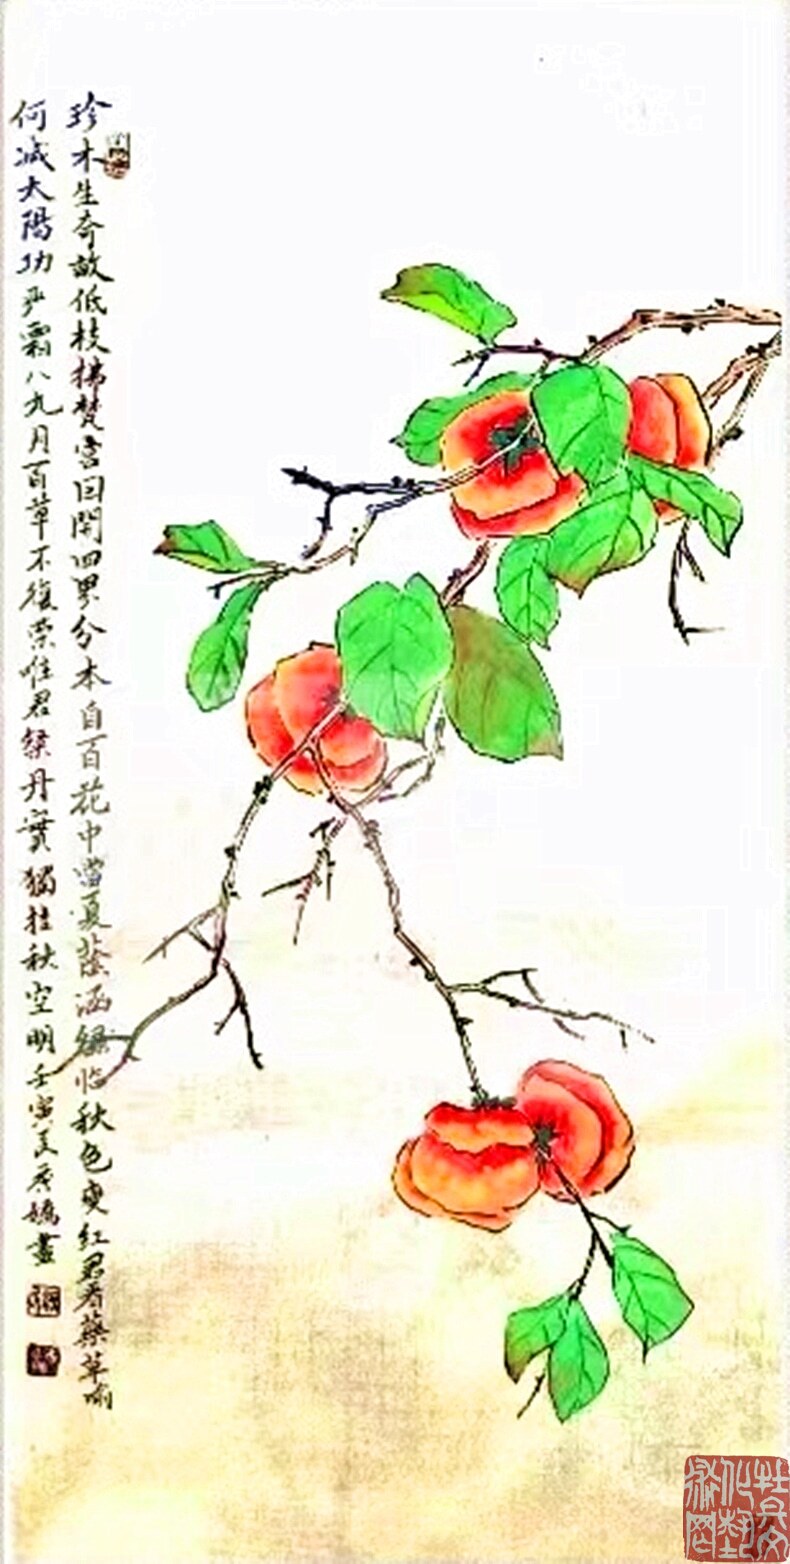 珍木生奇畝低枝拂梵宫因開四界分本自百花中當夏蔭涵綠臨秋色更紅君看藥草喻
何減太陽功嚴霜八九月百草不復榮唯君粲丹實獨挂秋空明壬寅畫